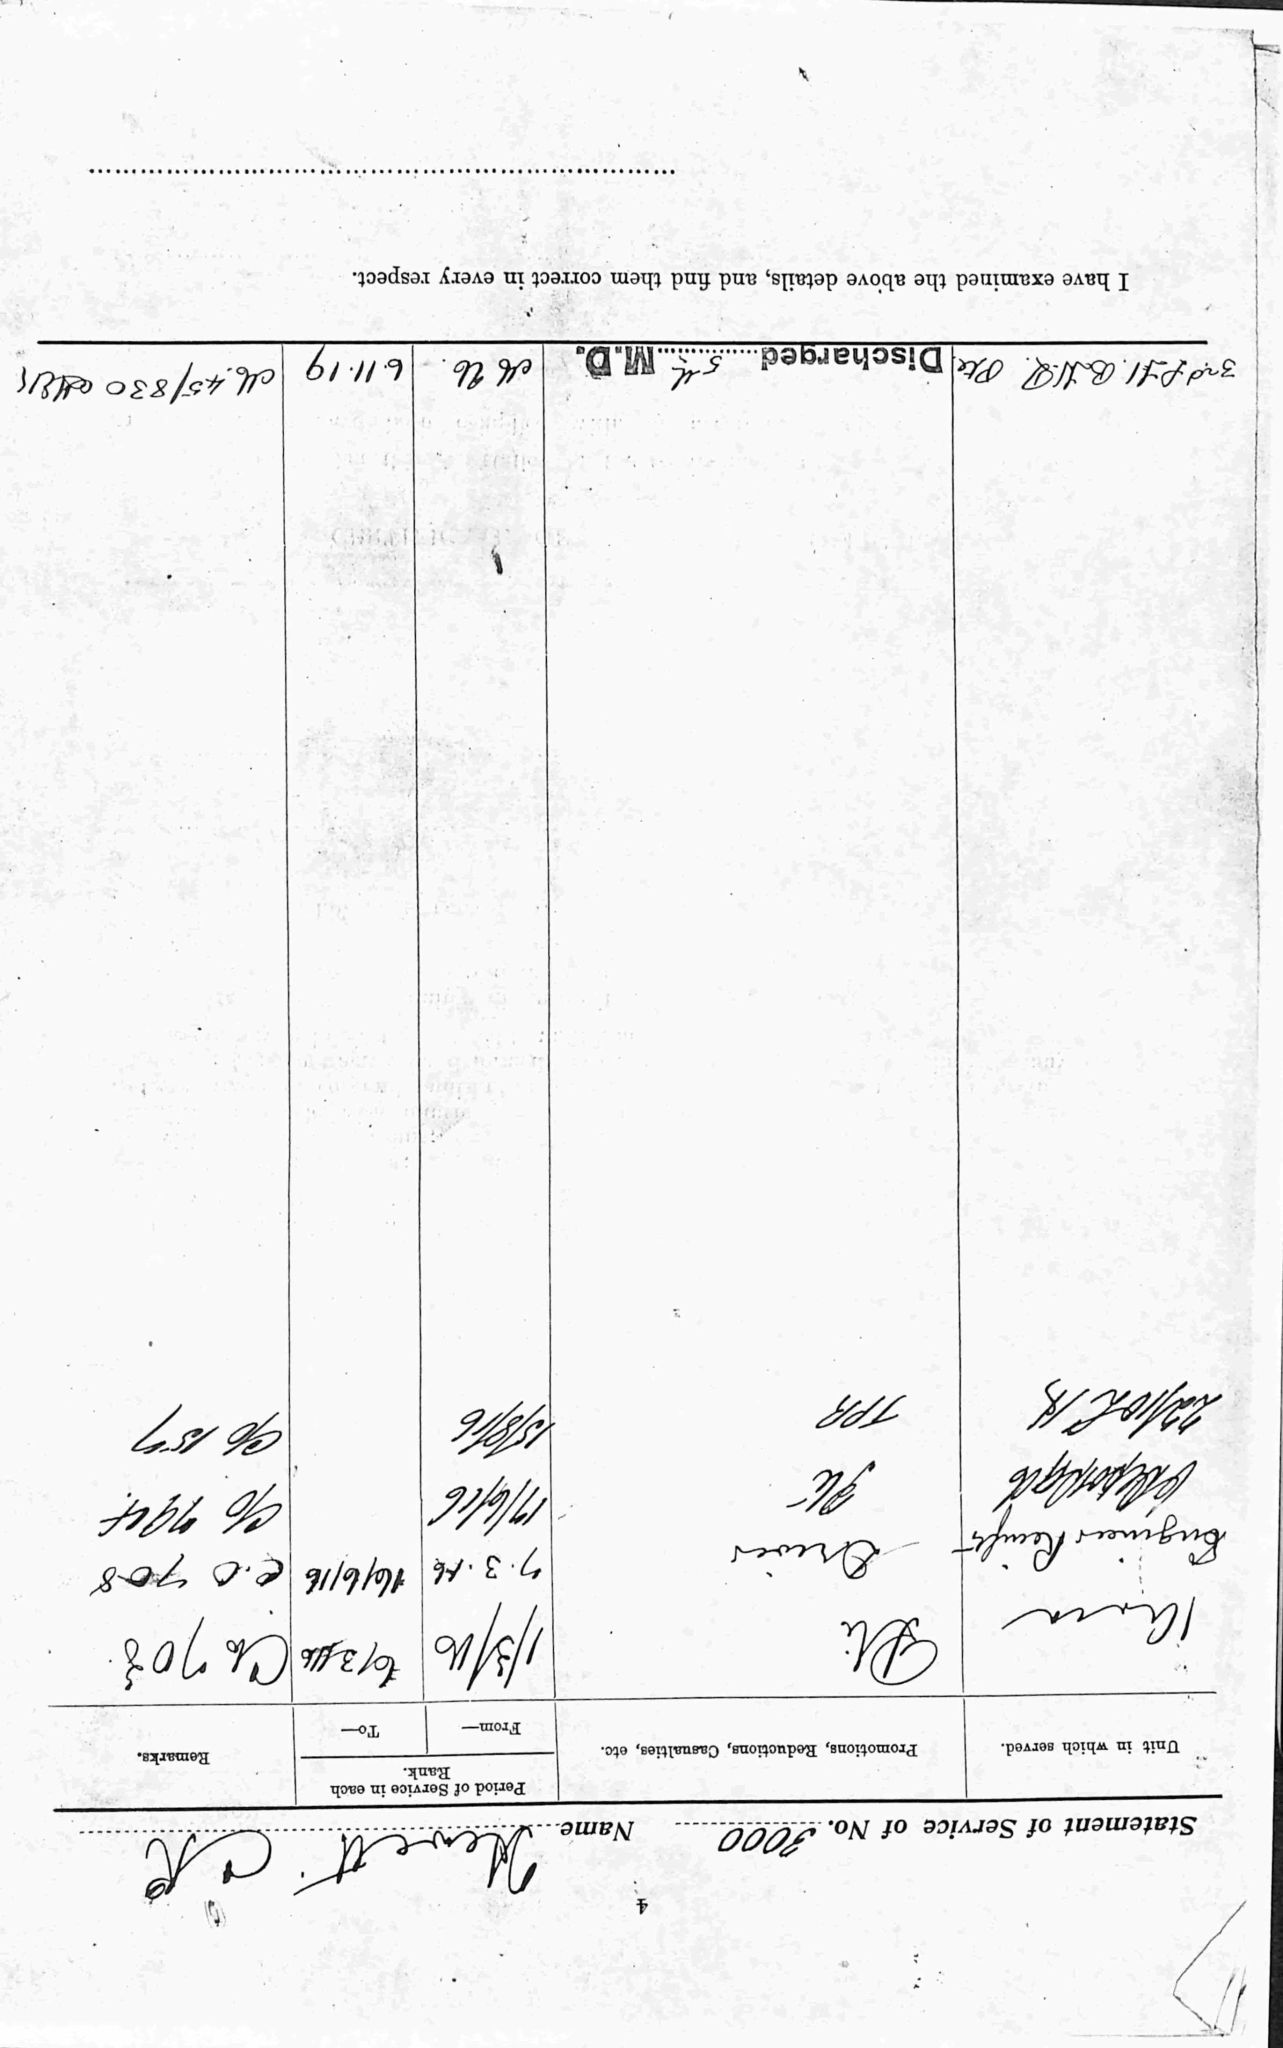 4
Statement of Service of No. 3000 Name Hewett C R
Unit in which served.
Promotions, Reductions, Casualties, etc.
Period of Service in each Rank.
From—
To—
Remarks.
Pte 1/3/16 6/3/16 C/o 703
Engineer Reinfts Driver 7.3.16 16/6/16 C.O 708
Pte 17/6/16 C/o 794
22/10 L H TPR 15/8/16 C/o 157
3rd L.H. Pte Discharged 5th M.D. 6.11.19 45/830
I have examined the above details, and find them correct in every respect.